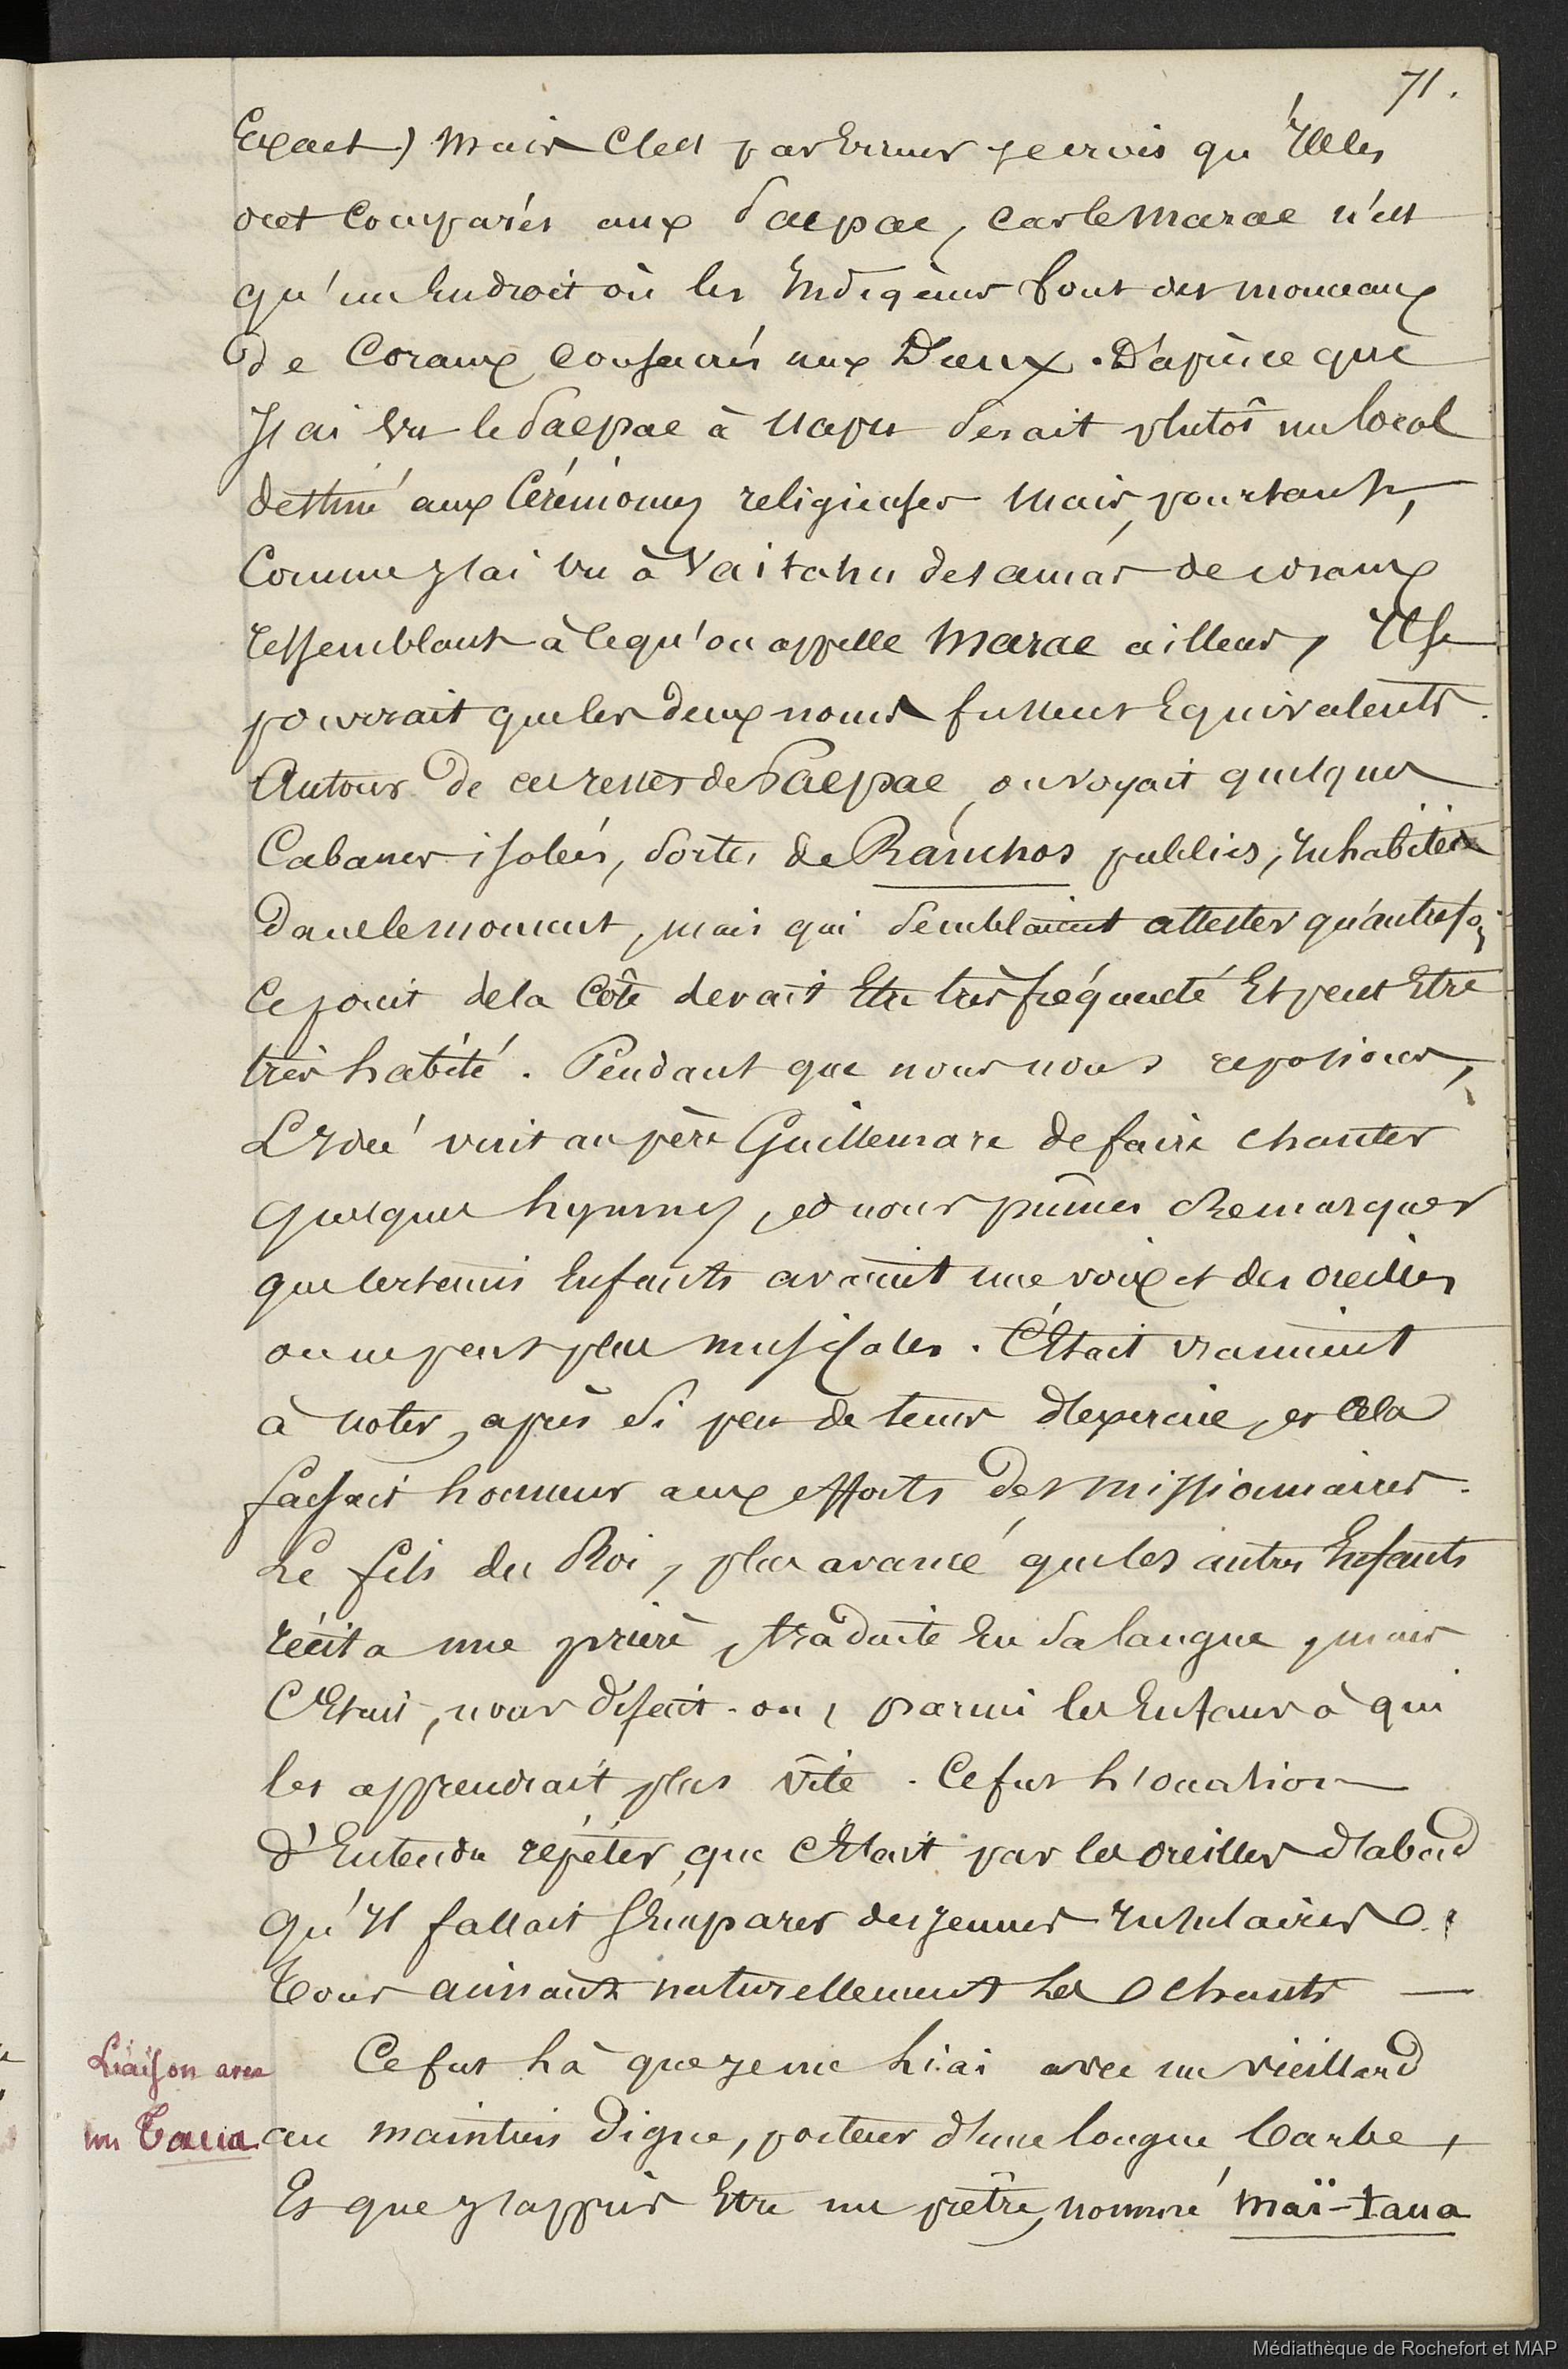 71.
Exact) Mais C'est par Erreur je crois qu'Elles
ont Comparés aux Paepae, car le Marae n'est
qu'un Endroit où les Indigènes font des monceaux
de Coraux consacrés aux Dieux. D'après ce que
J'ai Vu le Paepae à Uapu Serait plutôt un local
destiné aux Cérémonies religieuses Mais, pourtant,
Comme j'ai vu à Vaitahu des amas de coraux
ressemblant à ce qu'on appelle Marae ailleurs, Il se
pourrait que les deux noms fussent Equivalents.
Autour de ces restes de Paepae, on voyait quelques
Cabanes isolées, Sortes de Ranchos publics, Inhabitées
dans le moment, mais qui Semblaient attester qu'autrefois
Ce point de la Côte devait Etre très fréquenté Et peut Etre
très habité. Pendant que nous nous reposions,
L'Idée vint au père Guillemare de faire chanter
quelques hymnes, et nous pûmes Remarquer
que certains Enfants avaient une voix et des oreilles
on ne peut plus musicales. C'Etait vraiment
à noter, après Si peu de tems d'exercice, et Cela
faisait honneur aux efforts des Missionnaires.
Le fils du Roi, plus avancé que les autres Enfants
récita une prière, traduite En Sa langue, mais
C'Etait, nous disait-on, parmi les Enfans à qui
les apprendrait plus vite. Ce fut L'occasion
d'Entendre répéter que C'Etait par les oreilles d'abord
qu'Il fallait S'Emparer des jeunes Insulaires
Tous aimant naturellement Les Chants —
Liaison avec
un Taua
Ce fut Là que je me Liai avec un vieillard
au maintien digne, porteur d'une longue barbe,
Et que j'appris Etre un prêtre, nommé Maï-taua
Médiathèque de Rochefort et MAP